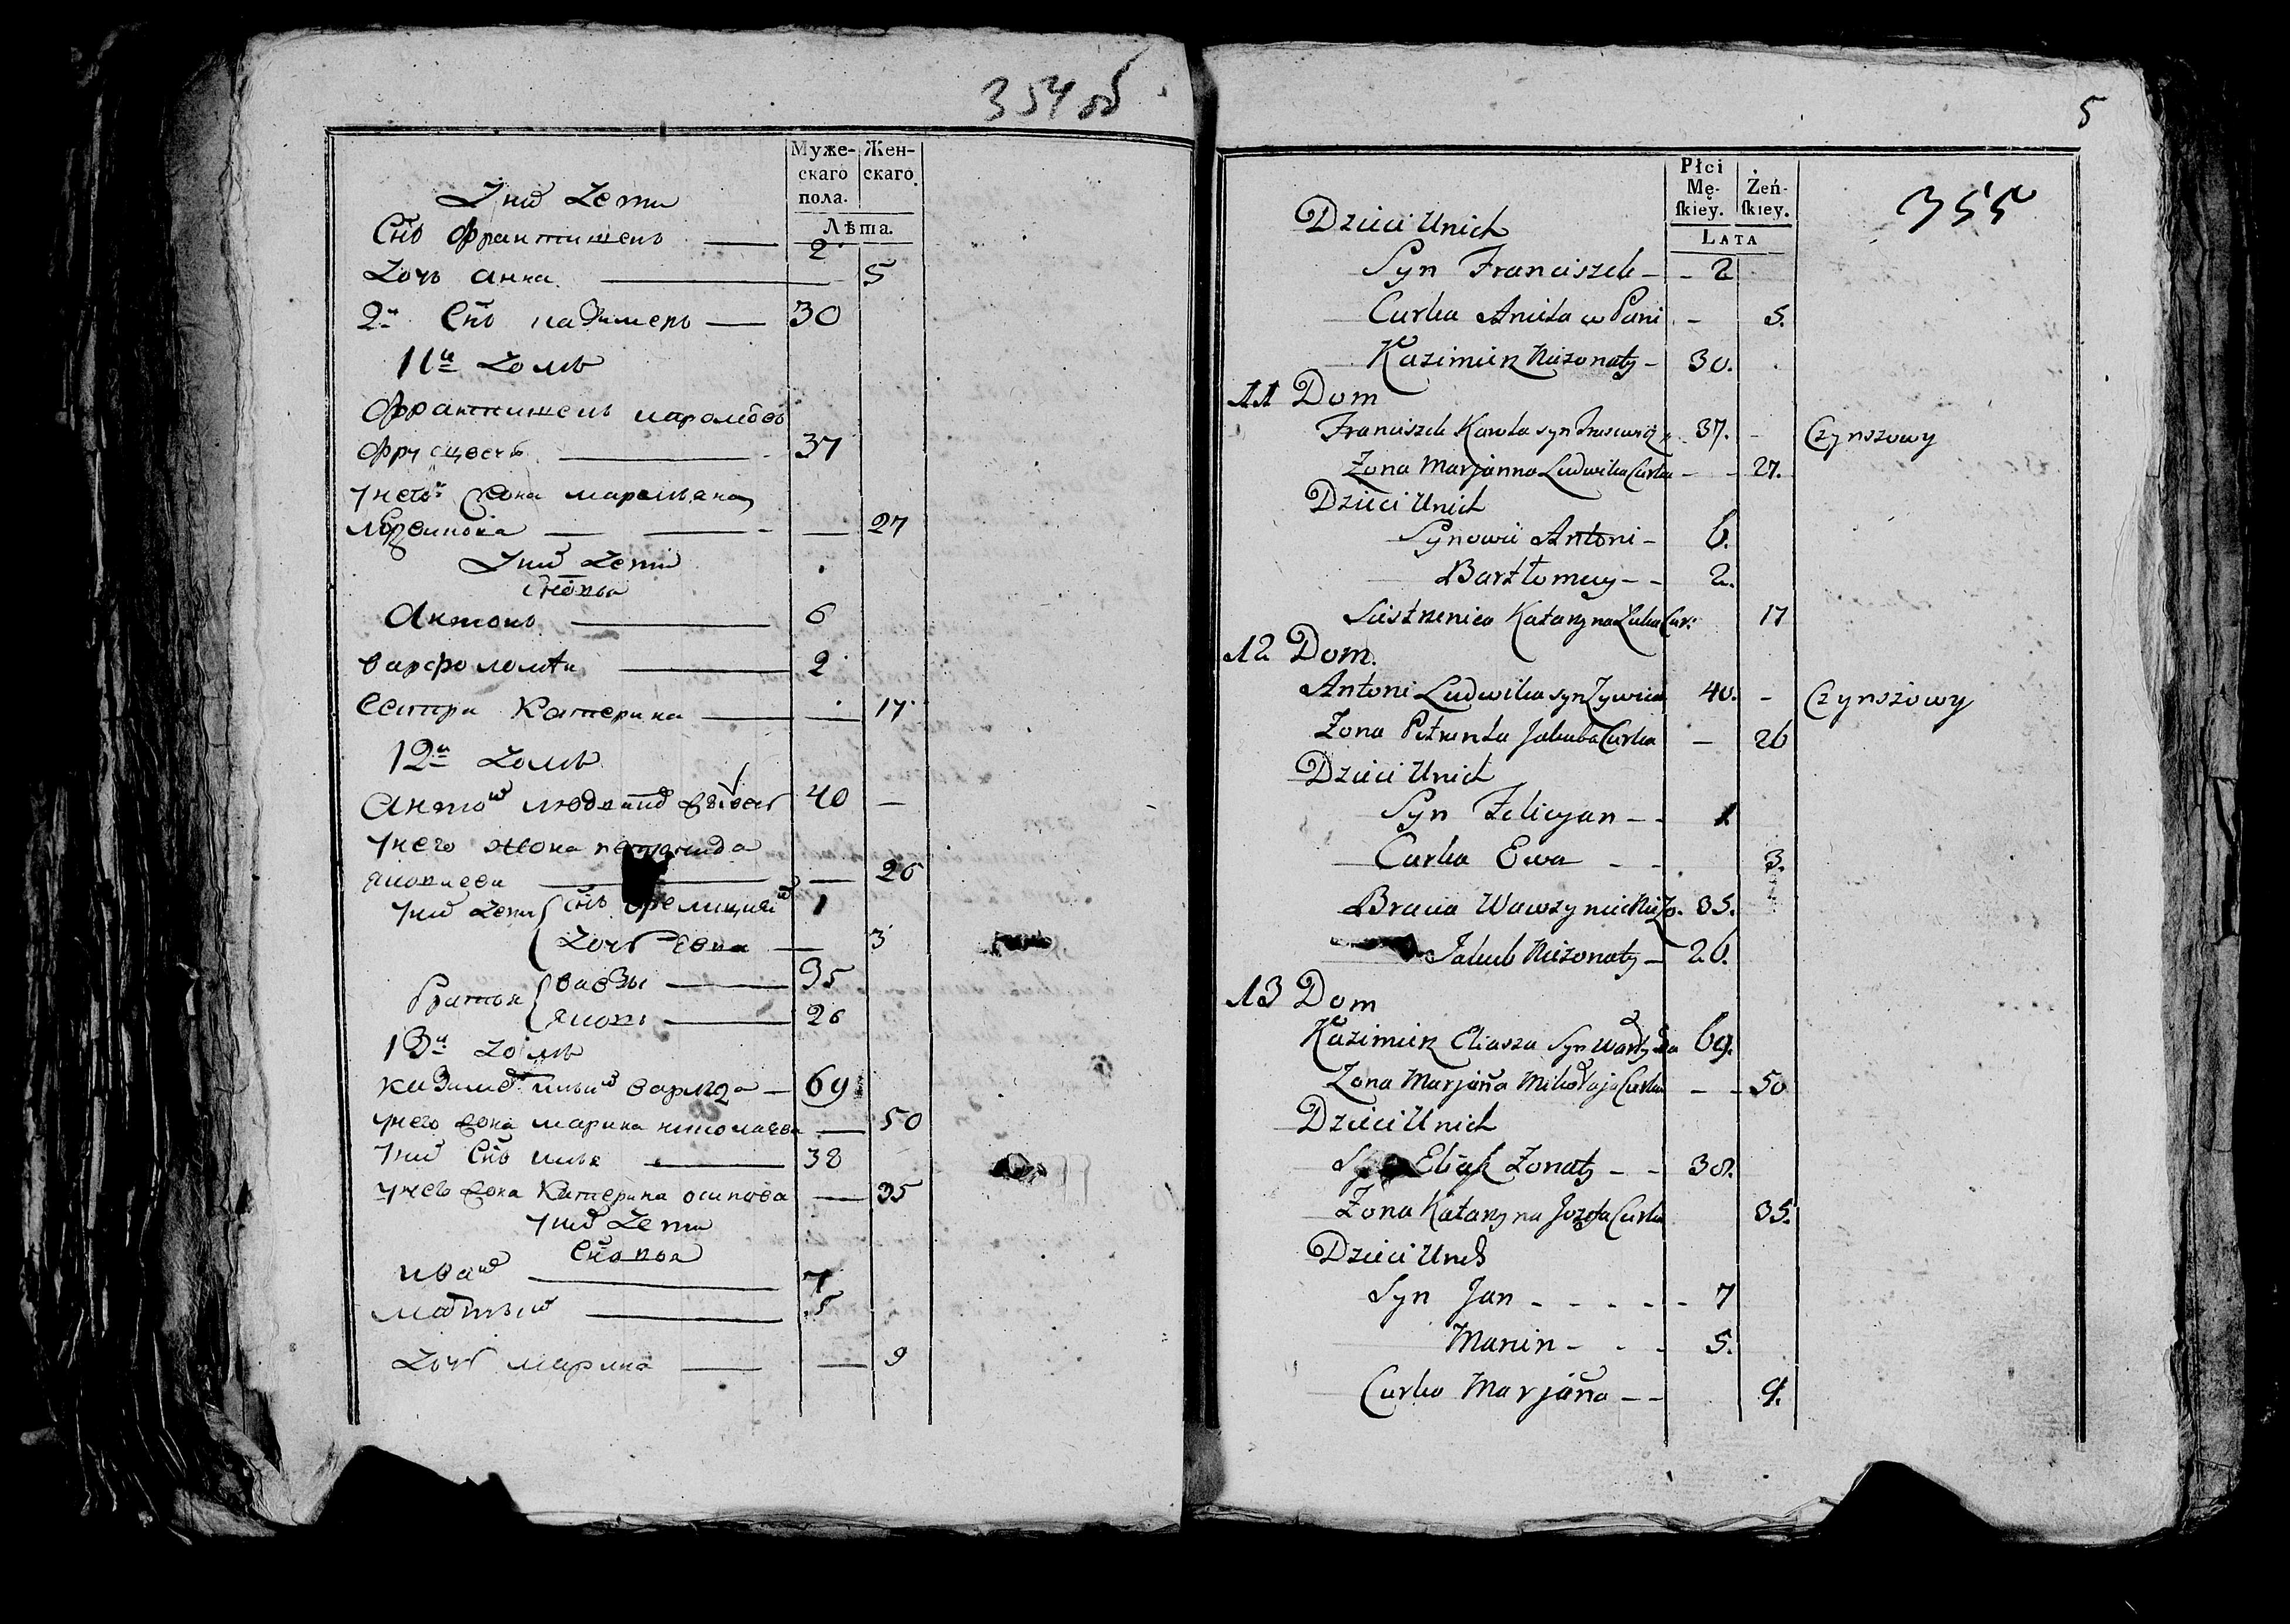 354 об
Муже-
скаго
пола.
Жен-
скаго
Лѣта.
У нихъ дети
Снъ Францишекъ 2
Дочь Анна 5
2й Снъ Казимеръ 30
11й Домъ
Францишекъ Каролёвъ
37
у него жона Марьяна
27
У нихъ дети
Сновья
Антонъ 6
Варфоломѣй 2
Сестра Катерина 17
12й Домъ
Антонъ 40 —
у него жона Петронида
Яковлева 26
у нихъ дети Снъ Фелициянъ 1
Дочь Евва 3
братья Вавзы 35
Яковъ 26
13й Домъ
Казимеръ Ильинъ 69
у него жона Марина Николаева 50
у нихъ Снъ Илья 38
у него жона Катерина Осипова 35
у нихъ дети
Сновья
Иванъ 7
5
Дочь Марина 9
5
355
Płci
Mę-
skiey.
Żeń-
skiey.
LATA
Dzieci Unich
Syn Franciszek - - 2
Curka Aniela w Pani - 5.
Kazimierz Nieżonaty - 30.
11 Dom
Franciszek Karola syn 37. - Czynszowy
Żona Marjanna Ludwika Curka - - 27.
Dzieci Unich
Synowie Antoni - 6.
Barztomiey - - 2.
Siestrzenica Katarzyna Cur: 17
12 Dom.
Antoni Ludwika syn 40. - Czynszowy
Żona Petrunela Jakuba Curka - 26
Dzieci Unich
Syn Felicyan - - 1
Curka Ewa - - 3.
Bracia Wawrzyniec Nieżo. 35.
Jakub Nieżonaty - 26.
13 Dom
Kazimierz Eliasza Syn 69.
Żona Marjaña Mikołaja Curka - - 50
Dzieci Unich
Eliasz Żonaty - - 38.
Żona Katarzyna Jozefa Curka 35.
Dzieci Unich
Syn Jan - - - - - 7
Marcin - - - 5.
Curka Marjaña - - 9.